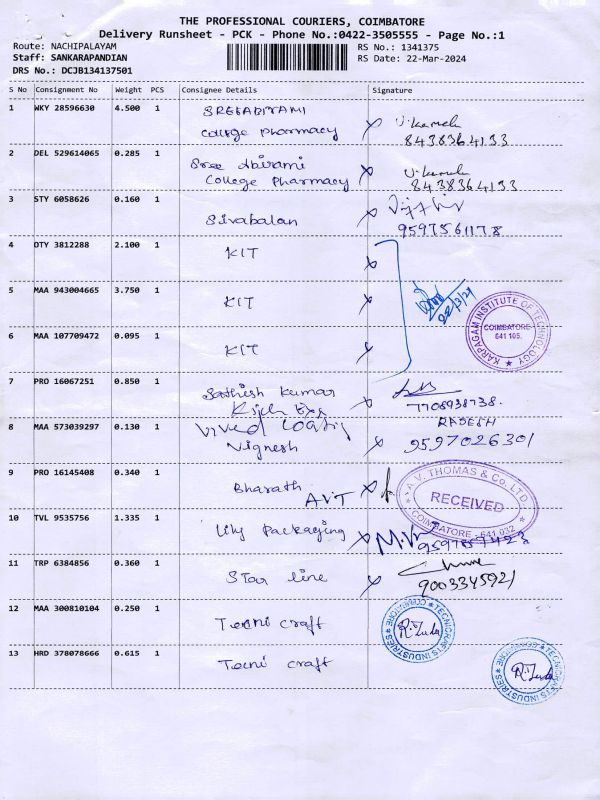 THE PROFESSIONAL COURIERS, COIMBATORE
Delivery Runsheet - PCK - Phone No.:0422-3505555 - Page No.:1
Route: NACHIPALAYAM
RS No.: 1341375
Staff: SANKARAPANDIAN
RS Date: 22-Mar-2024
DRS No.: DCJB134137501
S No Consignment No Weight PCS Consignee Details Signature
1 WKY 28596630 4.500 1 SREEABIRAMI
College Pharmacy
8438364133
2 DEL 529614065 0.285 1 Sree Abirami
College Pharmacy
8438364133
3 STY 6058626 0.160 1 Sivabalan
9597561178
4 OTY 3812288 2.100 1 KIT
5 MAA 943004665 3.750 1 KIT
22/3/24
KARPAGAM INSTITUTE OF TECHNOLOGY
COIMBATORE
641 105.
6 MAA 107709472 0.095 1 KIT
7 PRO 16067251 0.850 1 Sathish Kumar
7708938738.
8 MAA 573039297 0.130 1 Vignesh
RAJESH
9597026301
9 PRO 16145408 0.340 1 Bharath
AVT
A.V. THOMAS & Co. LTD.
RECEIVED
COIMBATORE - 641 032
10 TVL 9535756 1.335 1 Lily Packaging
11 TRP 6384856 0.360 1 Star line
9003345921
12 MAA 300810104 0.250 1 Tecni craft
TECNICRAFTS INDUSTRIES
COIMBATORE
13 HRD 378078666 0.615 1 Tecni craft
TECNICRAFTS INDUSTRIES
COIMBATORE